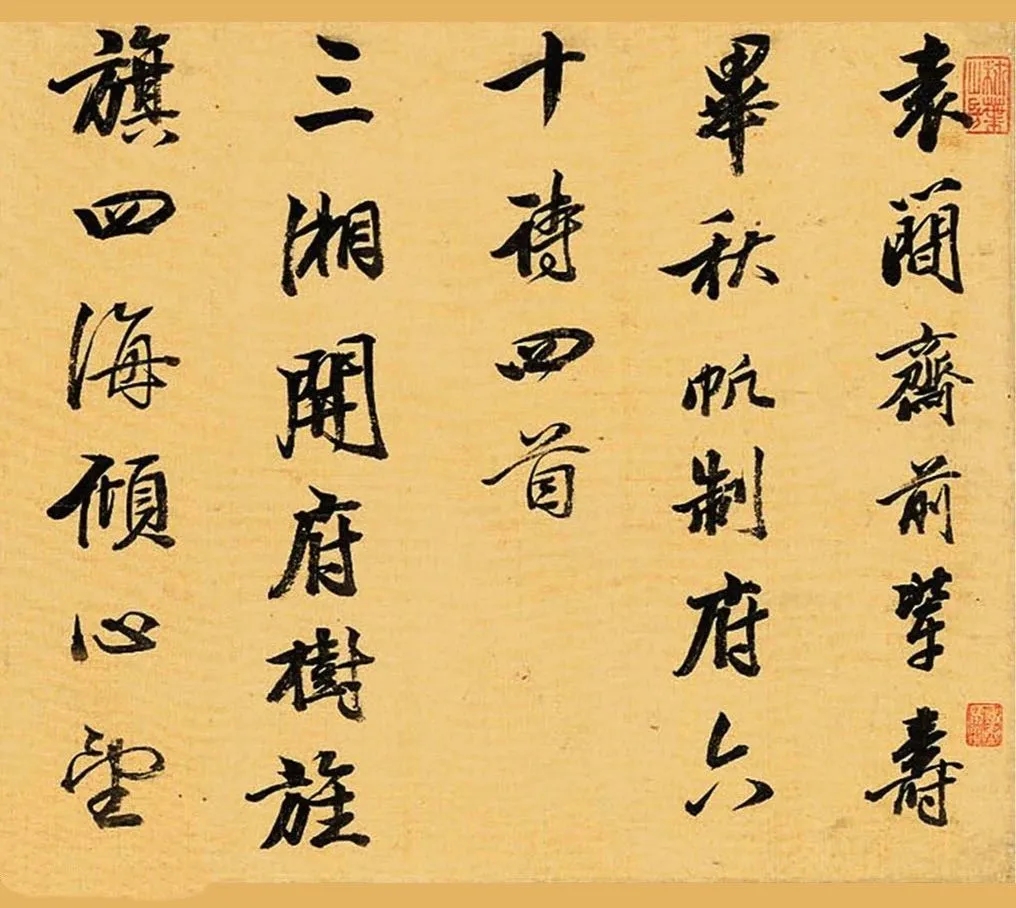 袁簡齋前輩壽
畢秋帆制府六
十詩四首
三湘開府樹旌
旗四海傾心望